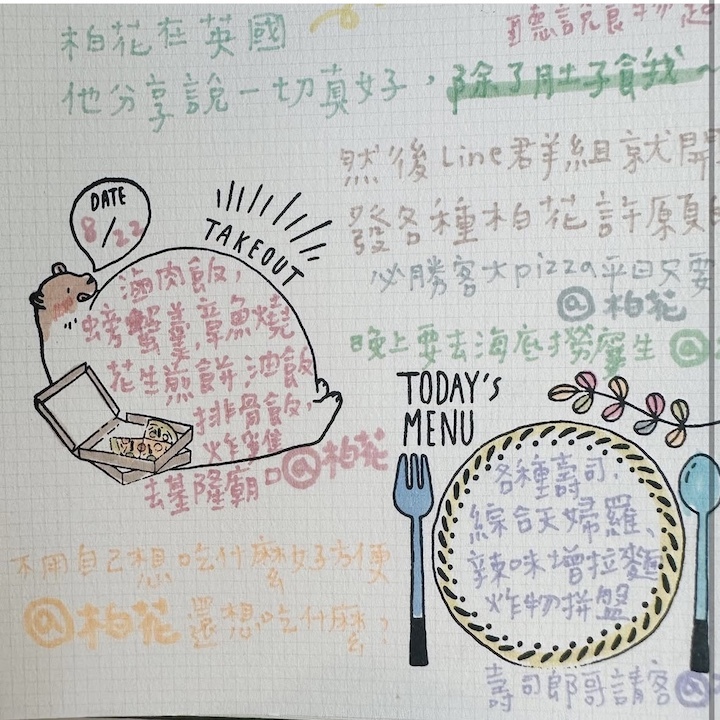 柏花在英國
聽說食物超
他分享說一切真好，除了肚子餓我～
然後Line群組就開
發各種柏花許願
必勝客大pizza平日只要
@柏花
晚上要去海底撈慶生 @
DATE
8/22
TAKEOUT
滷肉飯，
螃蟹羹，章魚燒
花生煎餅，油飯
排骨飯，
炸雞
去基隆廟口@柏花
TODAY's
MENU
各種壽司、
綜合天婦羅、
辣味增拉麵
炸物拼盤
壽司郎哥請客@
不用自己想吃什麼好方便
@柏花 還想吃什麼？